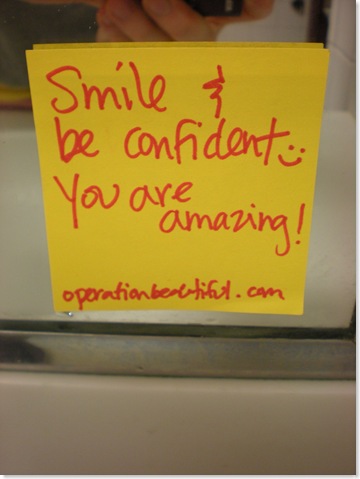 Smile &
be confident :)
You are
amazing!
operationbeautiful.com